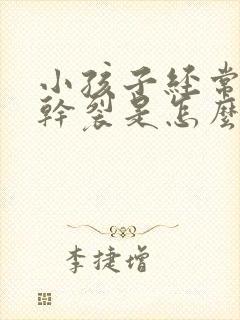 小孩子経常
幹裂是怎麼
李捷增